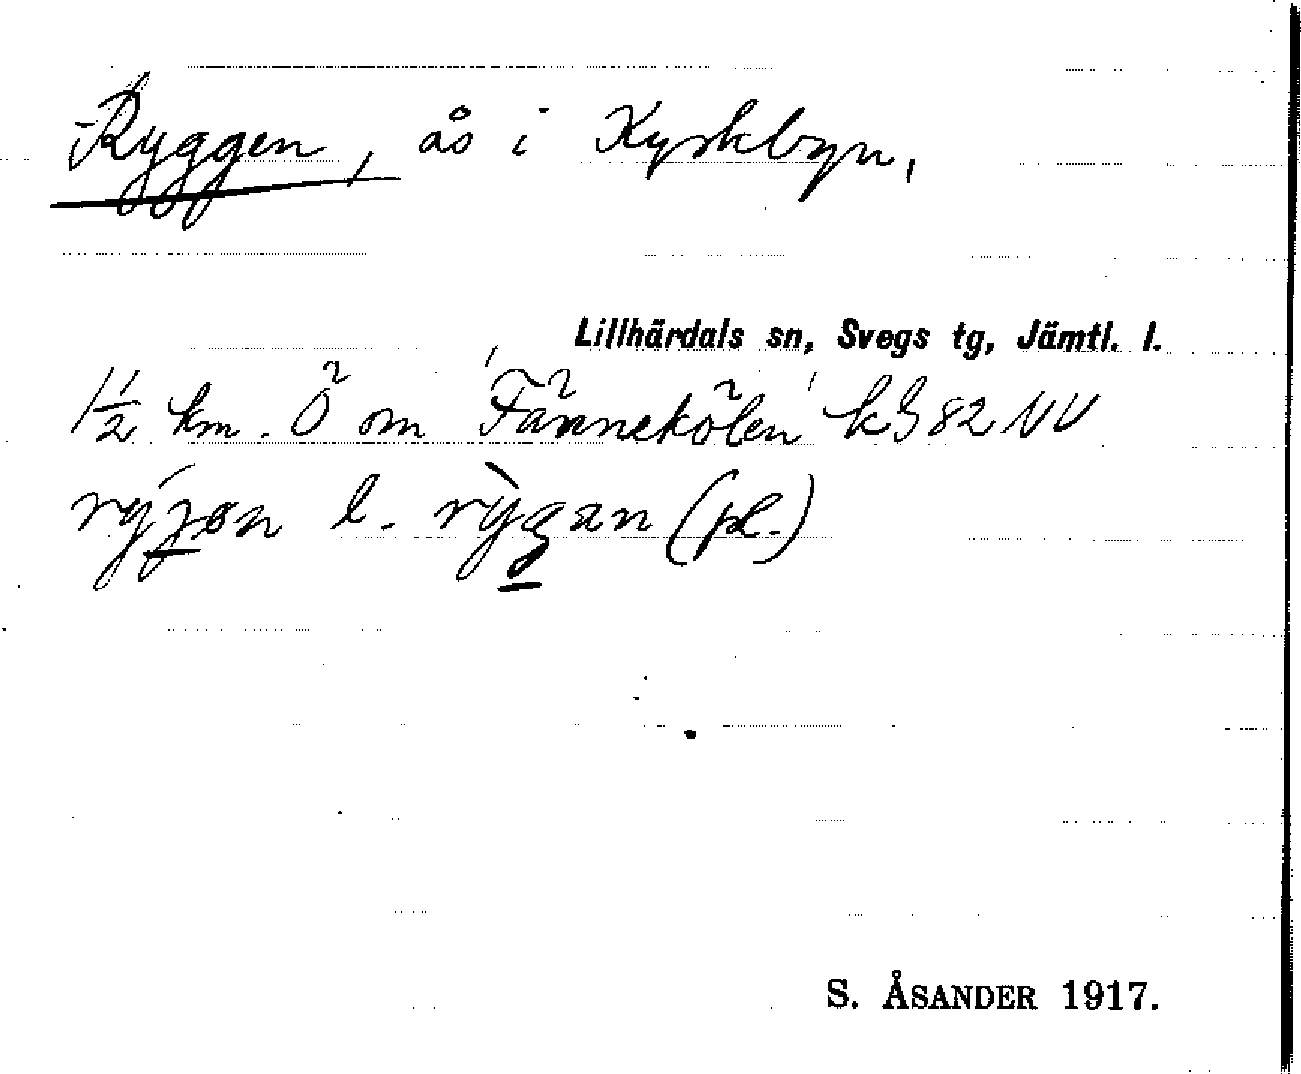 Ryggen, ås i Kyrkbyn,
Lillhärdals sn, Svegs tg, Jämtl. l.
1½ km. Ö om 'Fännekölen' kb 82 NV
rýgən l. rỳgan (pl.)
S. ÅSANDER 1917.